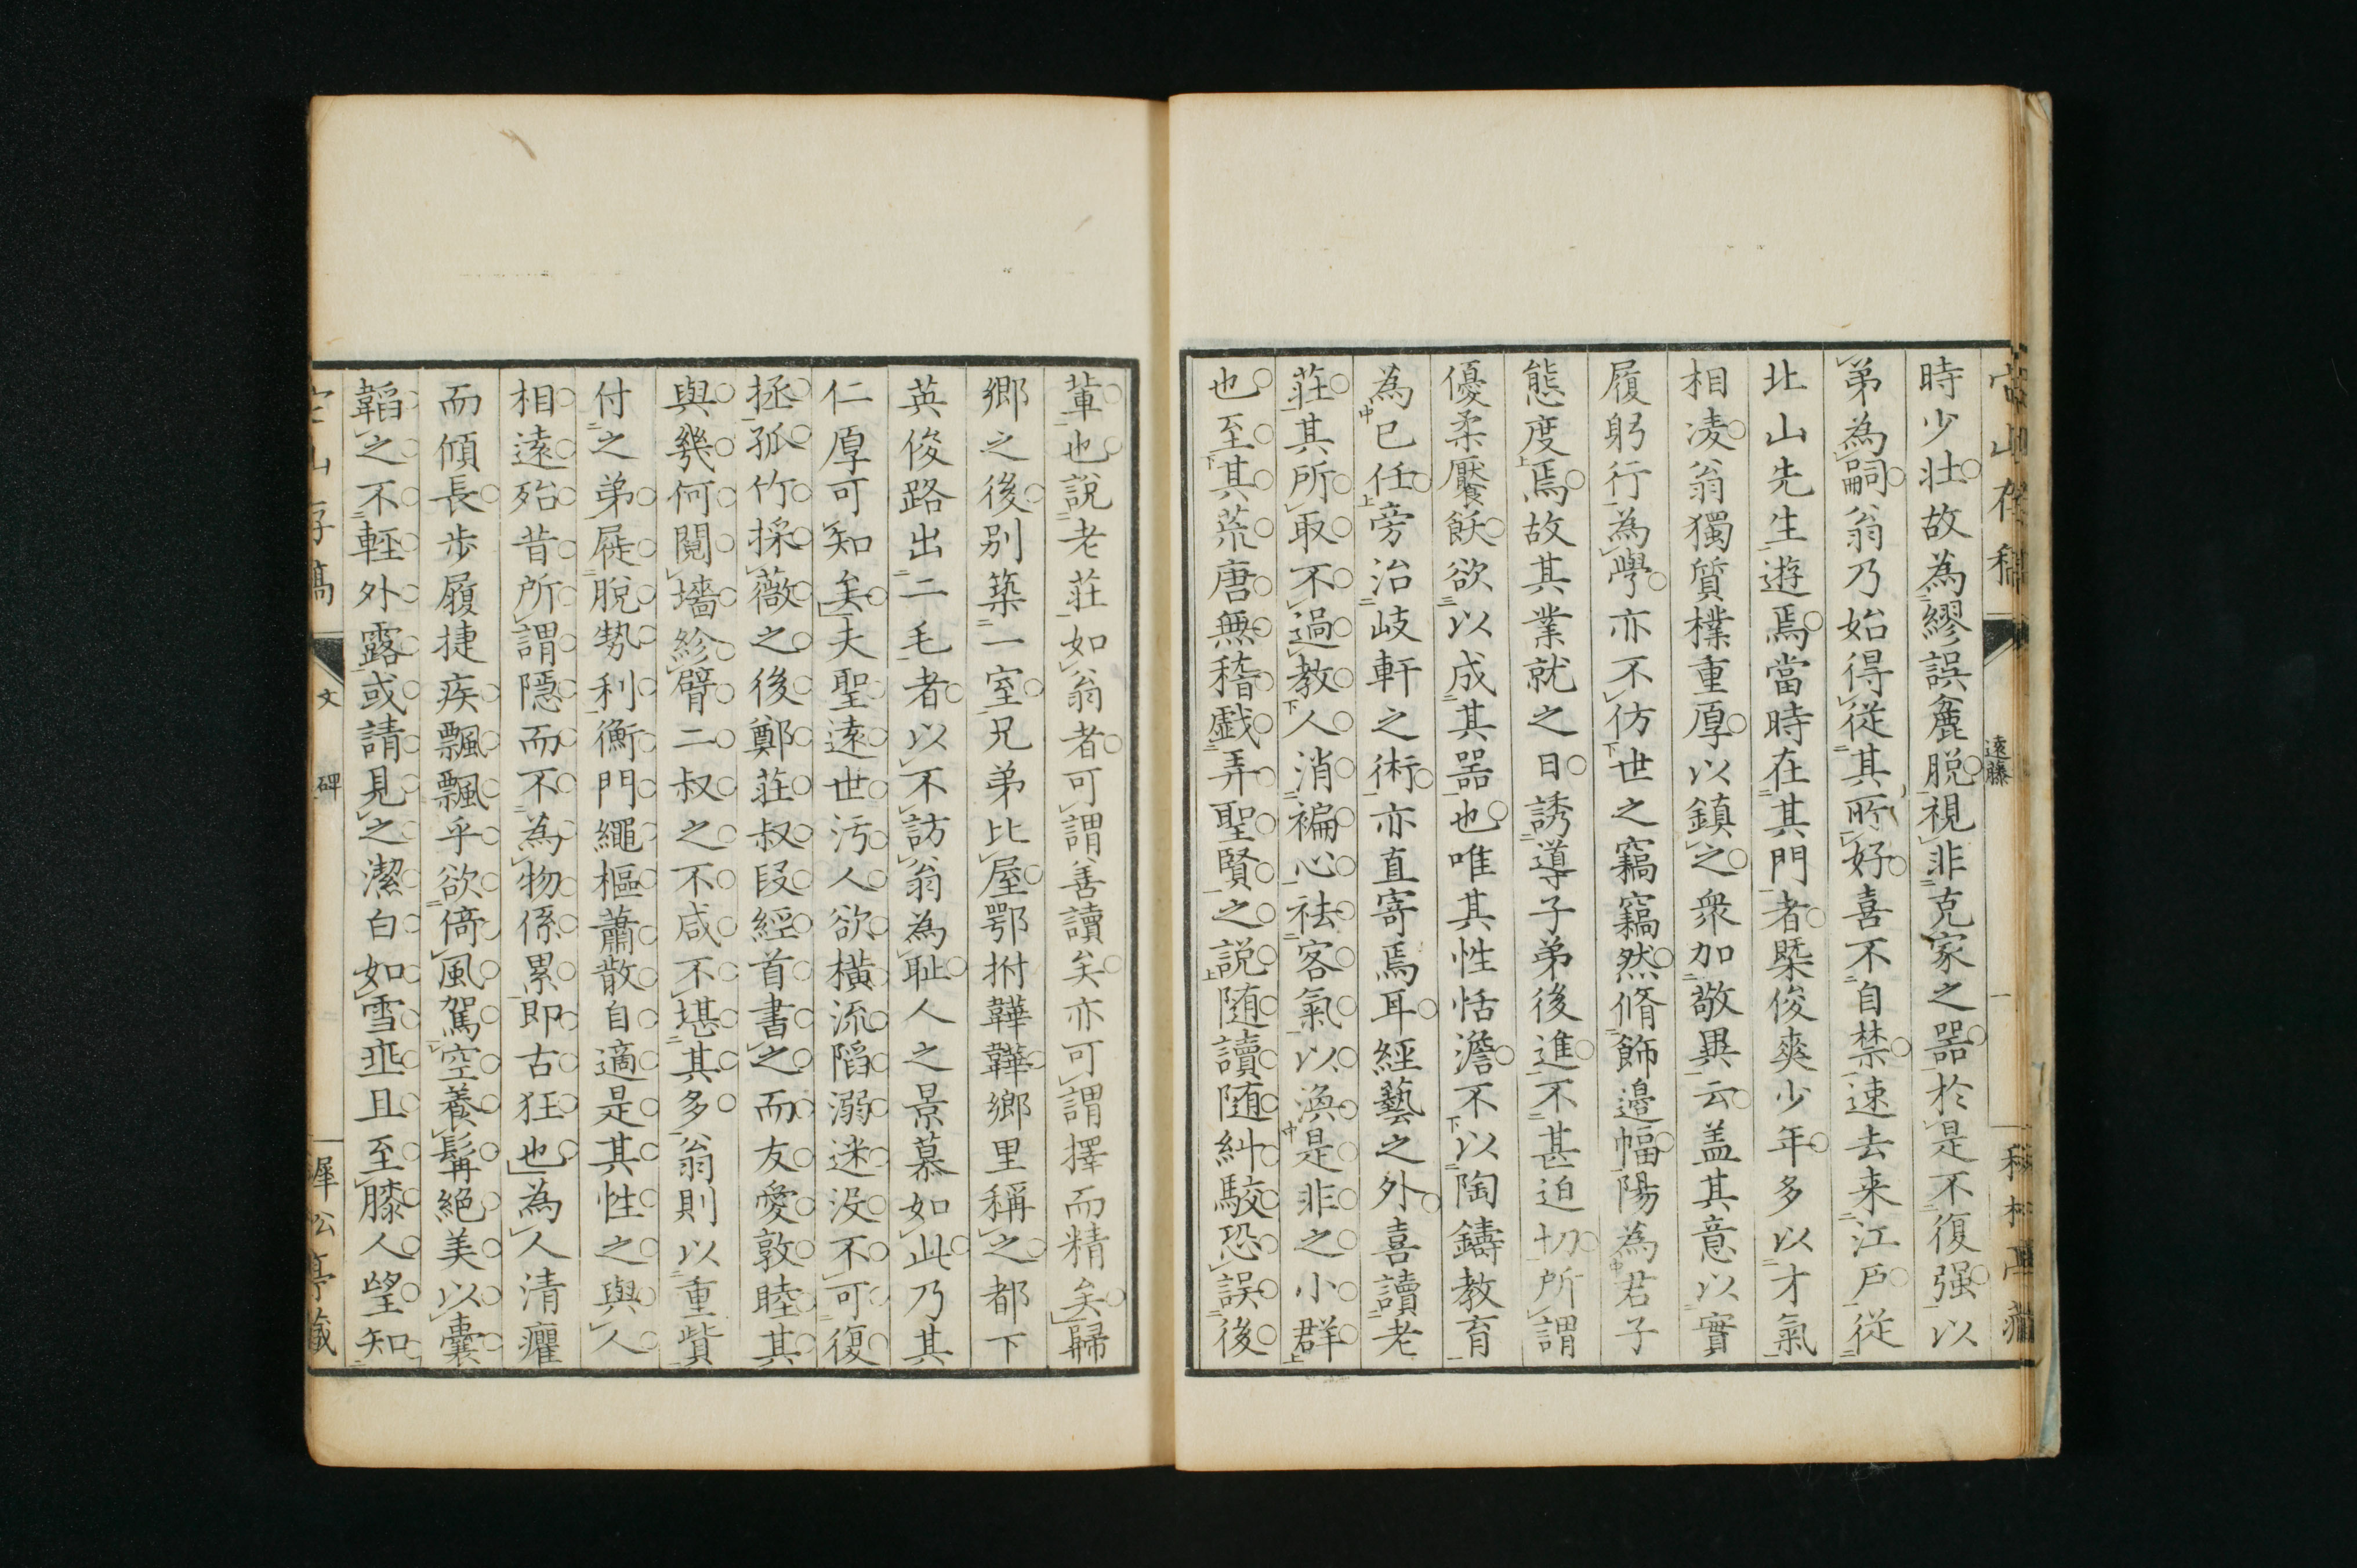 遠藤
時少壮故為繆誤麁脱視非克家之器於是不復强以
弟為嗣翁乃始得従其所好喜不自禁速去来江戸従
北山先生遊焉當時在其門者槩俊爽少年多以才氣
相凌翁獨質樸重厚以鎮之衆加敬異云盖其意以實
履躬行為學亦不仿世之竊竊然脩飾邉幅陽為君子
態度焉故其業就之日誘導子弟後進不甚迫切所謂
優柔饜飫欲以成其器也唯其性恬澹不以陶鑄教育
為己任旁治岐軒之術亦直寄焉耳經藝之外喜讀老
莊其所取不過教人消褊心祛客氣以渙是非之小群
也至其荒唐無稽戯弄聖賢之説随讀随糾駮恐誤後
輩也説老莊如翁者可謂善讀矣亦可謂擇而精矣歸
郷之後别築一室兄弟比屋鄂拊韡韡郷里稱之都下
英俊路出二毛者以不訪翁為耻人之景慕如此乃其
仁厚可知矣夫聖遠世汚人欲横流陷溺迷没不可復
拯孤竹採薇之後鄭莊叔段經首書之而友愛敦睦其
與幾何鬩墻紾臂二叔之不咸不堪其多翁則以重貲
付之弟屣脱勢利衡門繩樞蕭散自適是其性之與人
相遠殆昔所謂隱而不為物係累即古狂也為人清癯
而傾長歩履捷疾飄飄乎欲倚風駕空養髯絶美以囊
韜之不輕外露或請見之潔白如雪垂且至膝人望知
文
碑